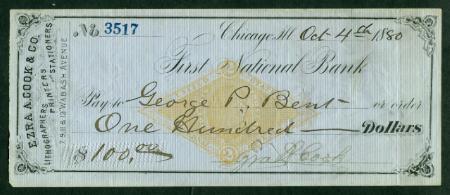 EZRA A. COOK & CO.
LITHOGRAPHERS, PRINTERS
AND STATIONERS
WABASH AVENUE
No. 3517
Chicago, Ill Oct 4th 1880
First National Bank
Pay to George P. Bent or order
One Hundred Dollars
$100.00
Cook